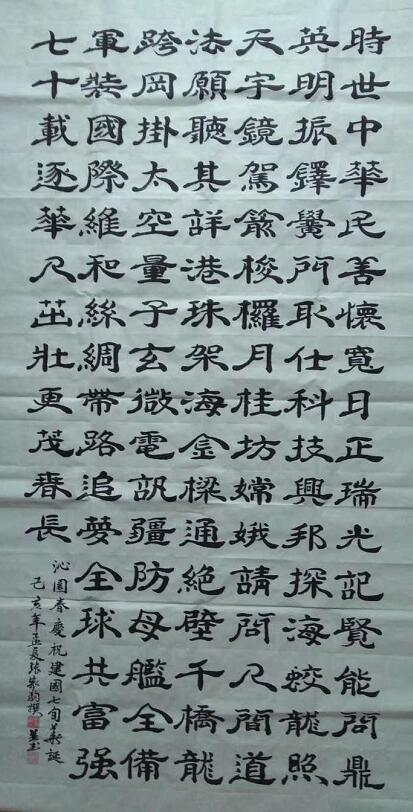 時世中華民善懷寬日正瑞光記賢能問鼎
英明振鐸黌所取仕科技興邦探海蛟龍照
天宇鏡駕梭欏月桂坊嫦娥請問人間道
法願聽其詳港珠架海金樑通絕壁千橋龍
跨岡掛太空量子玄微電訊疆防母艦全備
軍裝國際維和絲綢帶路追夢全球共富强
七十載逐華人茁壯更茂春長
沁園春慶祝建國七旬華誕
己亥年孟夏張家撰並書